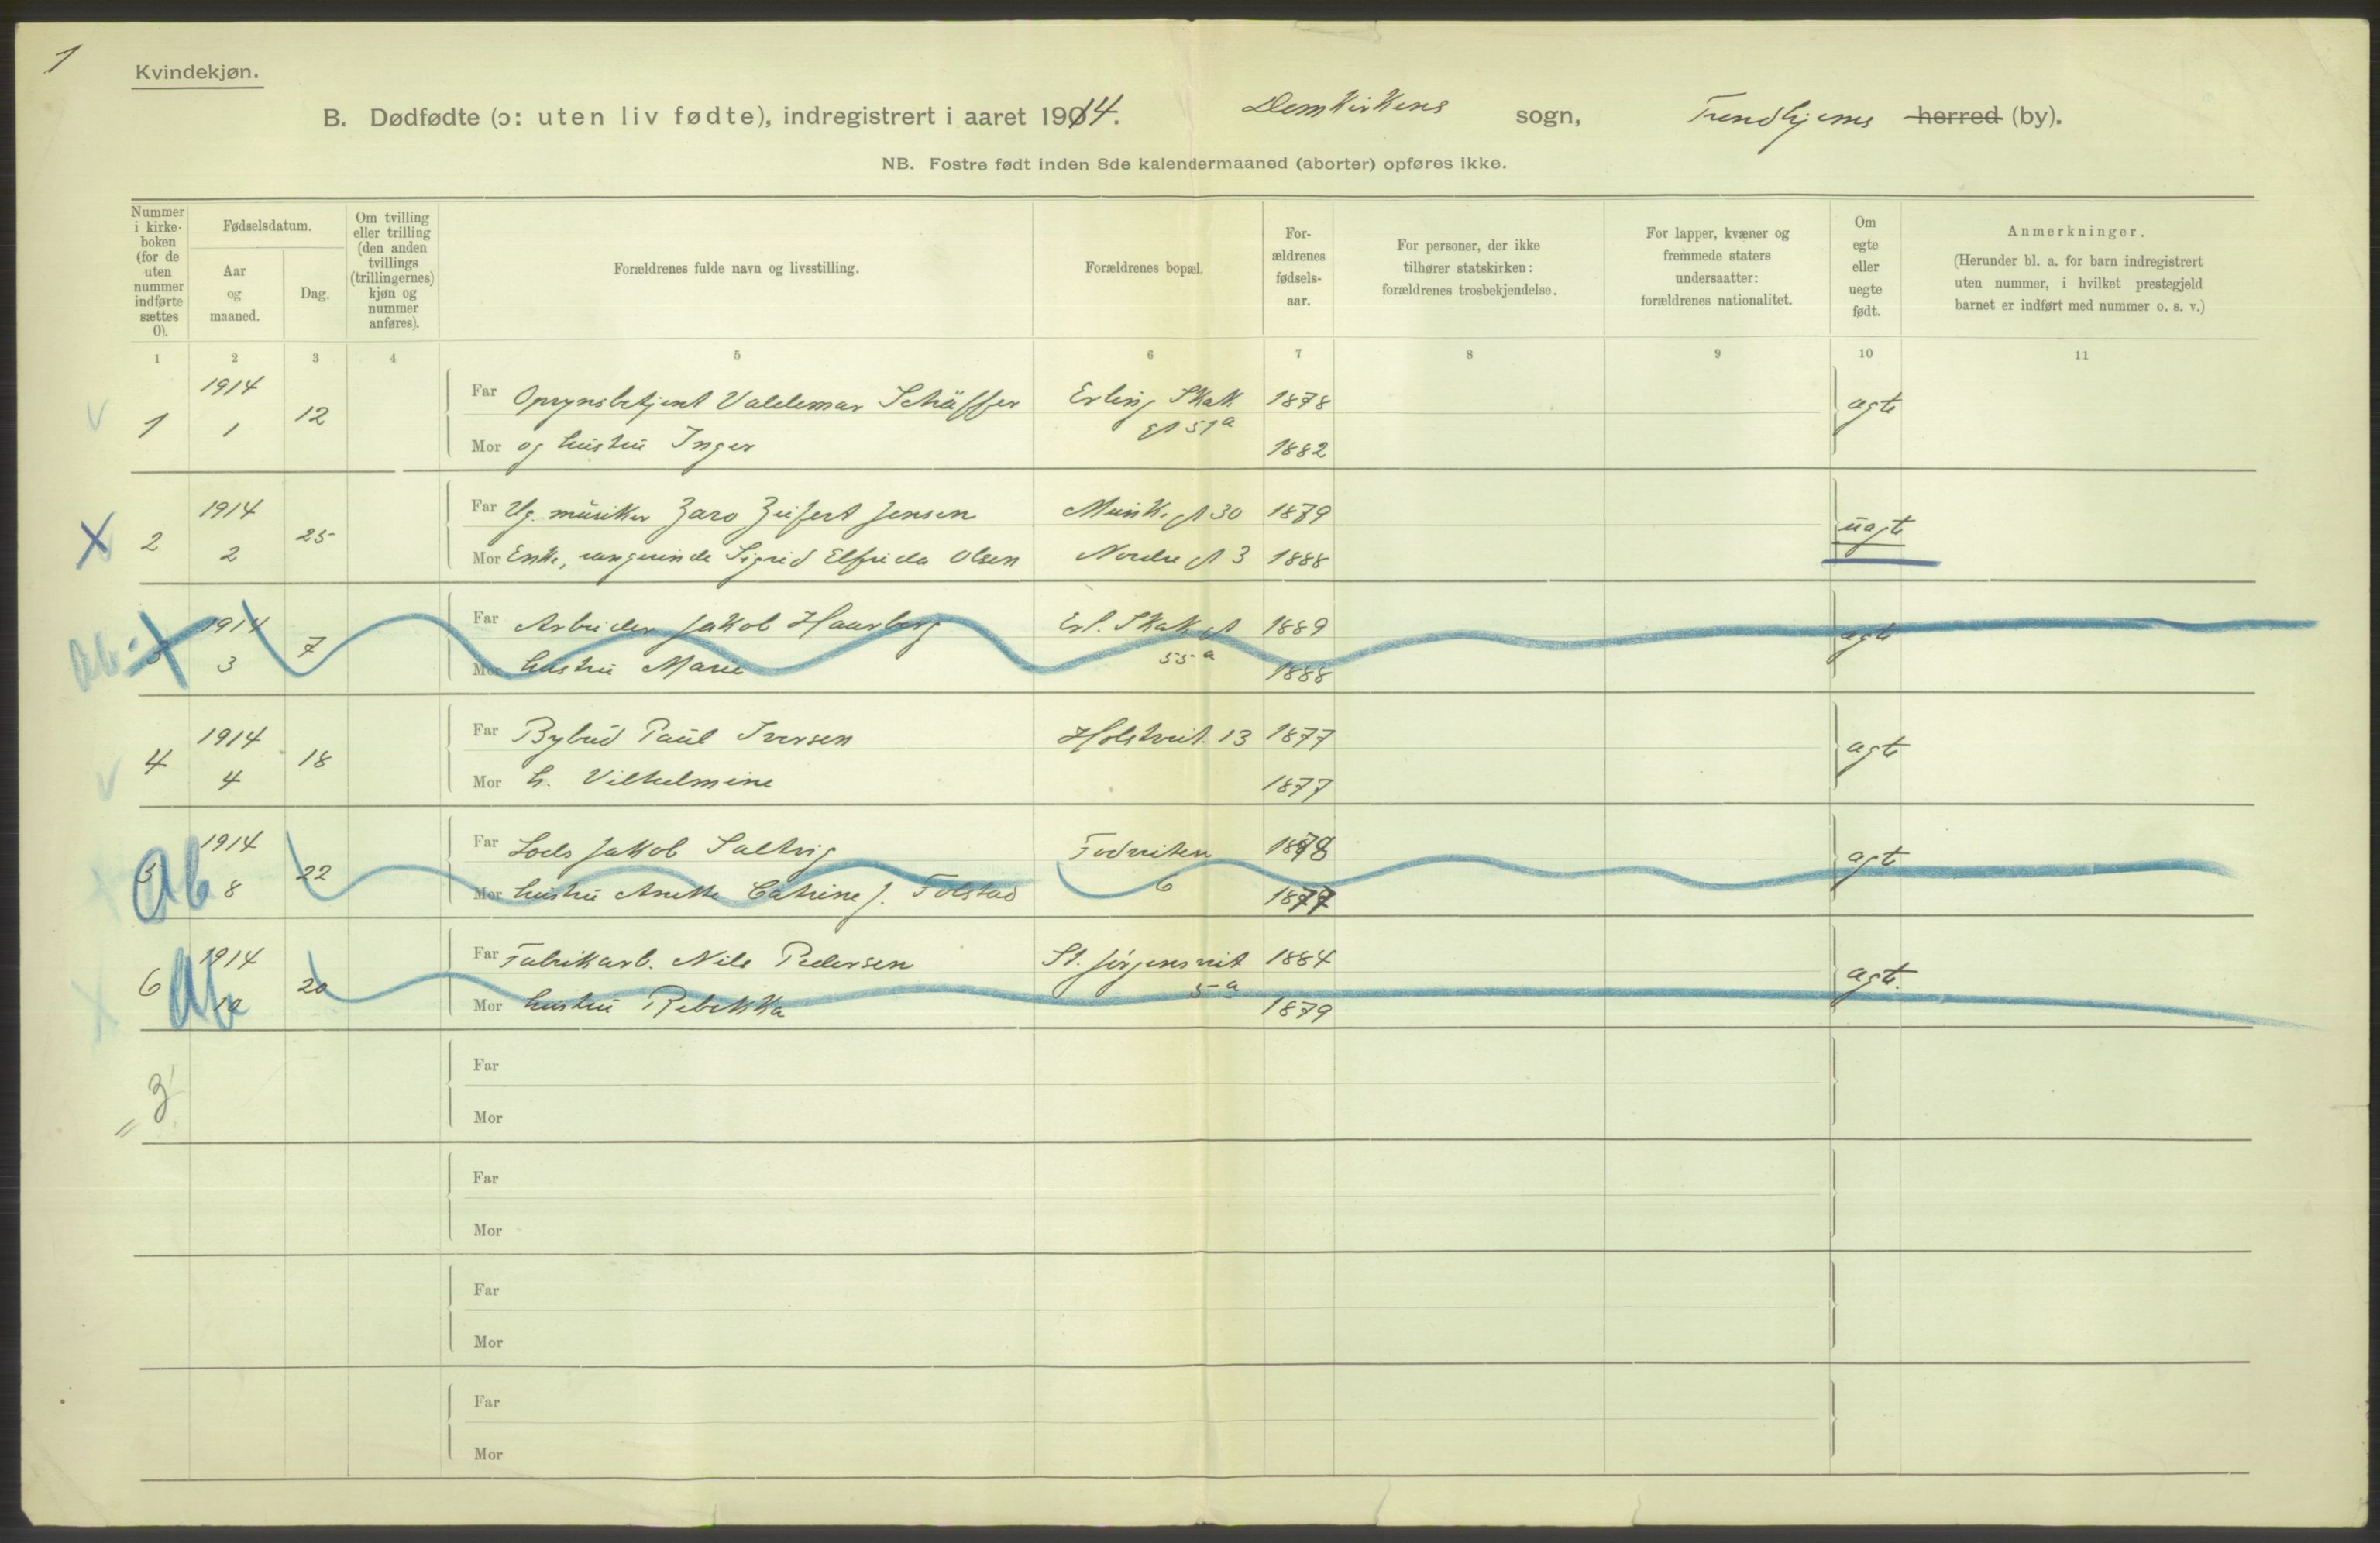 1
Kvindekjøn.
B. Dødfødte (ɔ: uten liv fødte), indregistrert i aaret 1914. Domkirkens sogn, Trondhjems herred (by).
NB. Fostre født inden 8de kalendermaaned (aborter) opføres ikke.
Nummer i kirke-boken (for de uten nummer indførte sættes 0).
Fødselsdatum.
Aar og maaned.
Dag.
Om tvilling eller trilling (den anden tvillings (trillingernes) kjøn og nummer anføres).
Forældrenes fulde navn og livsstilling.
Forældrenes bopæl.
For-ældrenes fødsels-aar.
For personer, der ikke tilhører statskirken: forældrenes trosbekjendelse.
For lapper, kvæner og fremmede staters undersaatter: forældrenes nationalitet.
Om egte eller uegte født.
Anmerkninger.
(Herunder bl. a. for barn indregistrert uten nummer, i hvilket prestegjeld barnet er indført med nummer o. s. v.)
1 2 3 4 5 6 7 8 9 10 11
1 1914 1 12 Far Opsynsbetjent Valdemar Schäffer Erling Skak gt 51a 1878 ægte
Mor og hustru Inger 1882
2 1914 2 25 Far Ug. musiker Zaro Zeifert Jensen Munkegt 30 1879 uægte
Mor Enke, sangerinde Sigrid Elfrida Olsen Nordre gt 3 1888
Ab.
3 1914 3 7 Far Arbeider Jakob Haarberg Erl. Skak gt 55a 1889 ægte
Mor hustru Marie 1888
4 1914 4 18 Far Bybud Paul Iversen Holstveit. 13 1877 ægte
Mor h. Vilhelmine 1877
Ab
5 1914 8 22 Far Lods Jakob Saltvig 6 1878 ægt
Mor hustru Anette Catrine J. Folstad 1877
Ab
6 1914 10 20 Far Fabrikarb. Nils Pedersen St. Jørgensveit 5a 1884 ægte.
Mor hustru Rebekka 1879
= 3
Far
Mor
Far
Mor
Far
Mor
Far
Mor